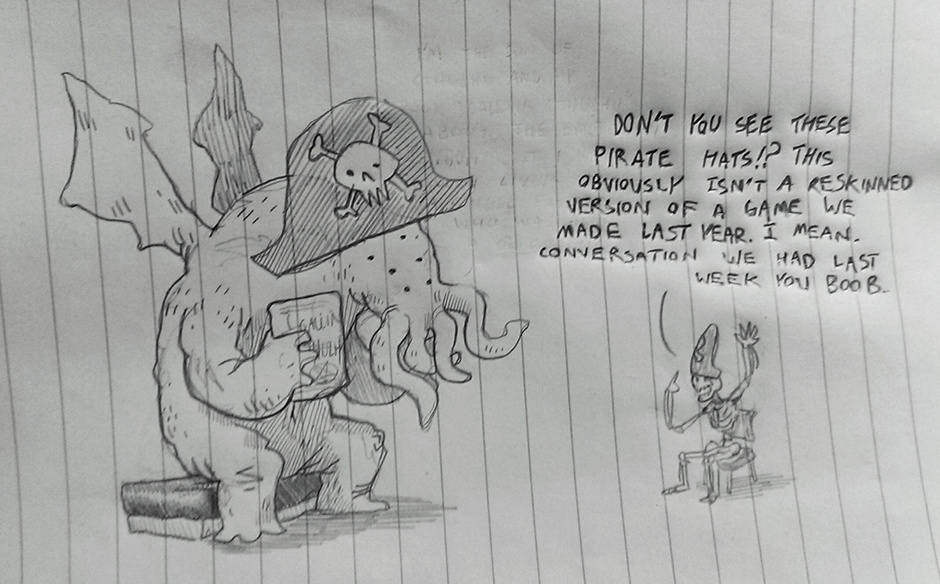 DON'T YOU SEE THESE
PIRATE HATS!? THIS
OBVIOUSLY ISN'T A RESKINNED
VERSION OF A GAME WE
MADE LAST YEAR. I MEAN.
CONVERSATION WE HAD LAST
WEEK YOU BOOB.